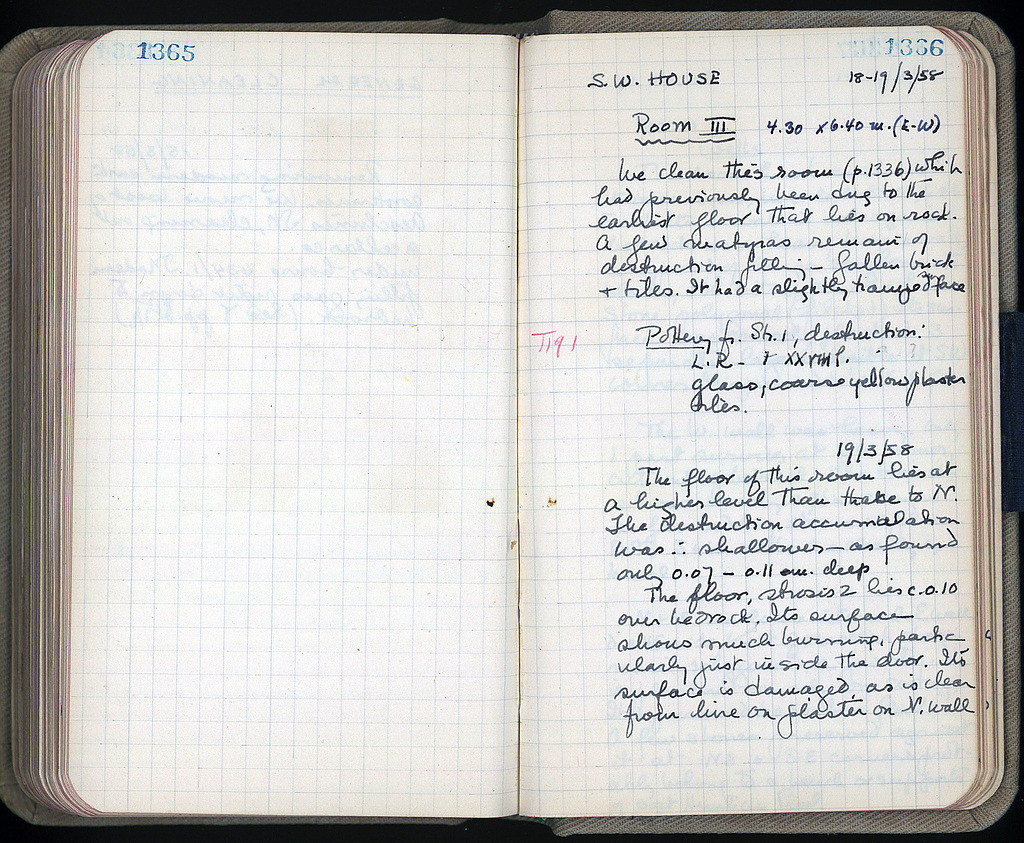 1365
1366
S.W. HOUSE 18-19/3/58
Room III 4.30 x 6.40 m. (E-W)
We clean this room (p.1336) which
had previously been dug to the
earliest floor that lies on rock.
A few matypas remain of
destruction filling – fallen brick
+ tiles. It had a slightly face
Πq1
Pottery fr. Str. 1, destruction:
L.R. –
glass, coarse yellow plaster
tiles.
19/3/58
The floor of this room lies at
a higher level than those to N.
The destruction accumulation
was ∴ shallower – as found
only 0.07 – 0.11 cm. deep
The floor, strosis 2 lies c. 0.10
over bedrock. Its surface
shows much burning, partic
ularly just inside the door. Its
surface is damaged, as is clear
from line on plaster on N. wall